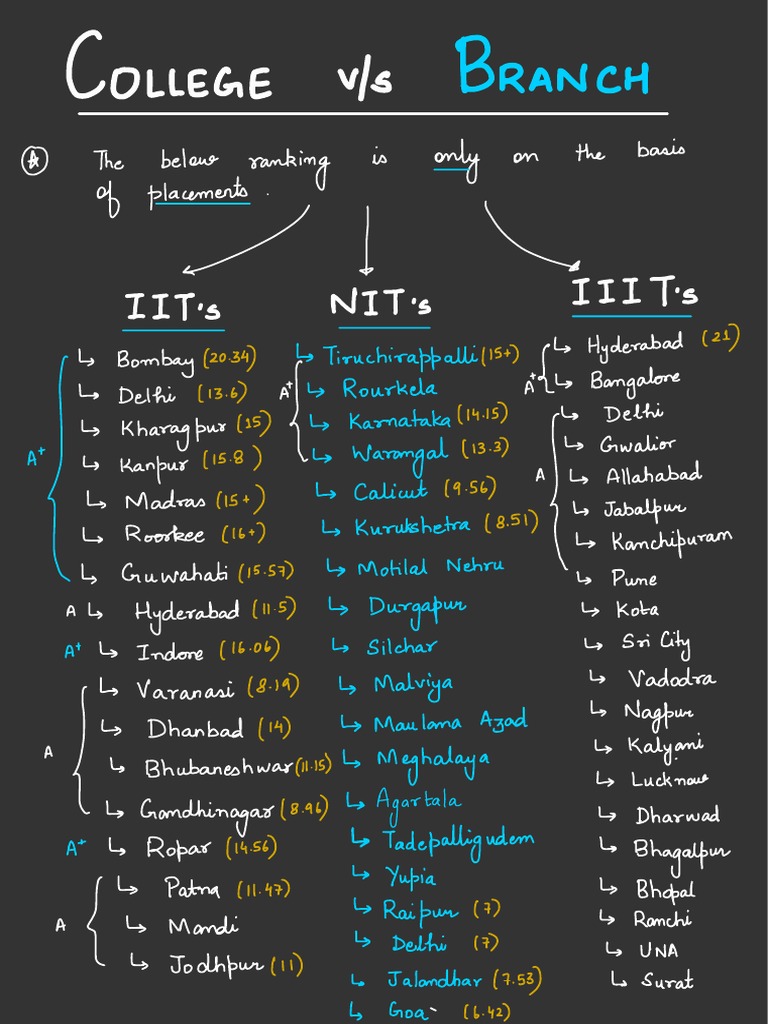 COLLEGE v/s BRANCH
The below ranking is only on the basis
of placements.
IIT's
A+
↳ Bombay (20.34)
↳ Delhi (13.6)
↳ Kharagpur (15)
↳ Kanpur (15.8)
↳ Madras (15+)
↳ Roorkee (16+)
↳ Guwahati (15.57)
A ↳ Hyderabad (11.5)
A+ ↳ Indore (16.06)
A
↳ Varanasi (8.19)
↳ Dhanbad (14)
↳ Bhubaneshwar (11.15)
↳ Gandhinagar (8.96)
A+ ↳ Ropar (14.56)
A
↳ Patna (11.47)
↳ Mandi
↳ Jodhpur (11)
NIT's
↳ Tiruchirappalli (15+)
A+
↳ Rourkela
↳ Karnataka (14.15)
↳ Warangal (13.3)
↳ Calicut (9.56)
↳ Kurukshetra (8.51)
↳ Motilal Nehru
↳ Durgapur
↳ Silchar
↳ Malviya
↳ Maulama Azad
↳ Meghalaya
↳ Agartala
↳ Tadepalligudem
↳ Yupia
↳ Raipur (7)
↳ Delhi (7)
↳ Jalandhar (7.53)
↳ Goa (6.42)
IIIT's
A+
↳ Hyderabad (21)
↳ Bangalore
A
↳ Delhi
↳ Gwalior
↳ Allahabad
↳ Jabalpur
↳ Kanchipuram
↳ Pune
↳ Kota
↳ Sri City
↳ Vadodra
↳ Nagpur
↳ Kalyani
↳ Lucknow
↳ Dharwad
↳ Bhagalpur
↳ Bhopal
↳ Ranchi
↳ UNA
↳ Surat